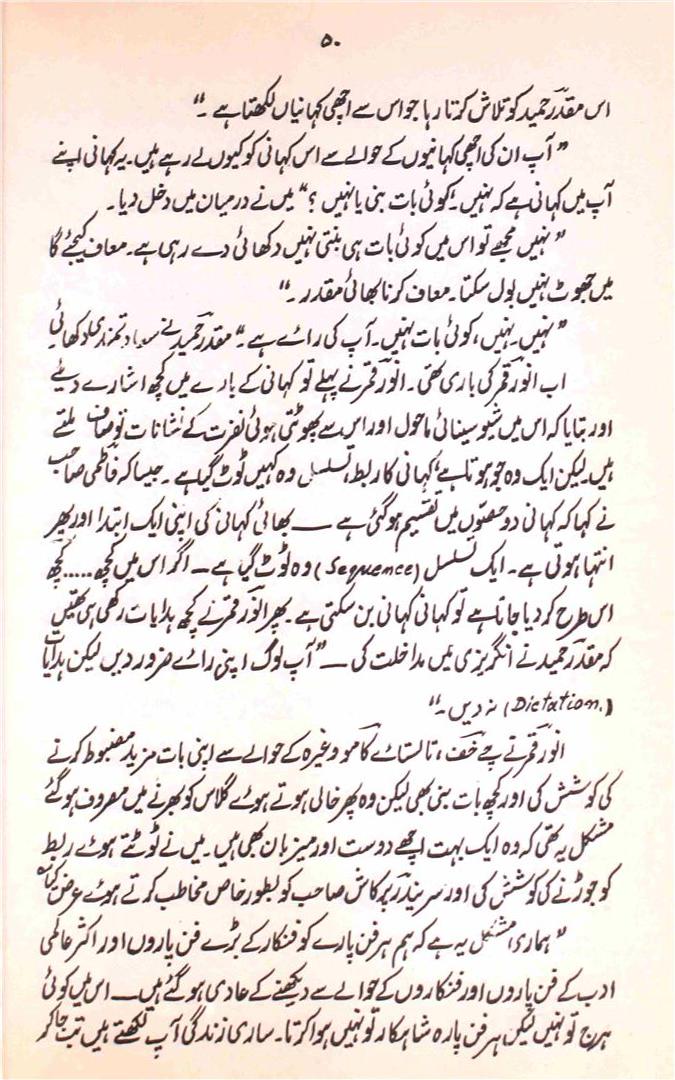 ۵۰
اس مقدر حمید کو تلاش کرتا رہا جو اس سے اچھی کہانیاں لکھتا ہے ۔“
”آپ ان کی اچھی کہانیوں کے حوالے سے اس کہانی کو کیوں لے رہے ہیں۔ یہ کہانی اپنے
آپ میں کہانی ہے کہ نہیں۔ کوئی بات بنی یا نہیں ؟“ میں نے درمیان میں دخل دیا۔
”نہیں مجھے تو اس میں کوئی بات ہی بنتی نہیں دکھائی دے رہی ہے۔ معاف کیجئے گا
میں جھوٹ نہیں بول سکتا۔ معاف کرنا بھائی مقدر ۔“
”نہیں۔ نہیں، کوئی بات نہیں۔ آپ کی رائے ہے۔“ مقدر حمید نے سعادتمندی دکھائی
اب انور قمر کی باری تھی۔ انور قمر نے پہلے تو کہانی کے بارے میں کچھ اشارے دیئے
اور بتایا کہ اس میں شیو سینائی ماحول اور اس سے پھوٹتی ہوئی نفرت کے نشانات تو صاف ملتے
ہیں۔ لیکن ایک وہ جو ہوتا ہے کہانی کا ربط، تسلسل وہ کہیں ٹوٹ گیا ہے۔ جیسا کہ فاطمی صاحب
نے کہا کہ کہانی دو حصوں میں تقسیم ہو گئی ہے ــــ بھائی کہانی کی اپنی ایک ابتدا اور پھر
انتہا ہوتی ہے۔ ایک تسلسل (Sequence) وہ ٹوٹ گیا ہے ـ اگر اس میں کچھ ..... کچھ
اس طرح کر دیا جاتا ہے تو کہانی کہانی بن سکتی ہے۔ پھر انور قمر نے کچھ ہدایات رکھی ہی تھیں
کہ مقدر حمید نے انگریزی میں مداخلت کی ــ ”آپ لوگ اپنی رائے ضرور دیں لیکن ہدایات
(Dictation.) نہ دیں۔“
انور قمر نے چے خف، تالستائے کامو وغیرہ کے حوالے سے اپنی بات مزید مضبوط کرنے
کی کوشش کی اور کچھ بات بنی بھی لیکن وہ پھر خالی ہوتے ہوئے گلاس کو بھرنے میں مصروف ہو گئے
مشکل یہ تھی کہ وہ ایک بہت اچھے دوست اور میزبان بھی ہیں۔ میں نے ٹوٹتے ہوئے ربط
کو جوڑنے کی کوشش کی اور سریندر پرکاش صاحب کو بطور خاص مخاطب کرتے ہوئے عرض کیا
”ہماری مشکل یہ ہے کہ ہم ہر فن پارے کو فنکار کے بڑے فن پاروں اور اکثر عالمی
ادب کے فن پاروں اور فنکاروں کے حوالے سے دیکھنے کے عادی ہو گئے ہیں ــ اس میں کوئی
ہرج تو نہیں لیکن ہر فن پارہ شاہکار تو نہیں ہوا کرتا۔ ساری زندگی آپ لکھتے ہیں تب جا کر